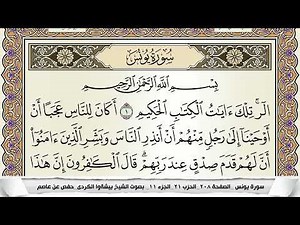 سُورَةُ يُونُسَ
بِسْمِ اللَّهِ الرَّحْمَٰنِ الرَّحِيمِ
الٓر ۚ تِلْكَ ءَايَٰتُ الْكِتَٰبِ الْحَكِيمِ ١ أَكَانَ لِلنَّاسِ عَجَبًا أَنْ
أَوْحَيْنَآ إِلَىٰ رَجُلٍ مِّنْهُمْ أَنْ أَنذِرِ النَّاسَ وَبَشِّرِ الَّذِينَ ءَامَنُوٓا۟
أَنَّ لَهُمْ قَدَمَ صِدْقٍ عِندَ رَبِّهِمْ ۗ قَالَ الْكَٰفِرُونَ إِنَّ هَٰذَا
سورة يونس الصفحة ٢٠٨ الحزب ٢١ الجزء ١١ بصوت الشيخ بيشةوا الكردي حفص عن عاصم